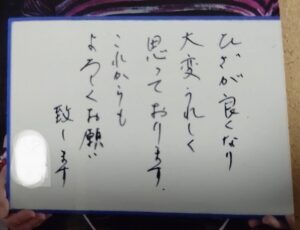 ひざが良くなり
大変うれしく
思っております。
これからも
よろしくお願い
致します